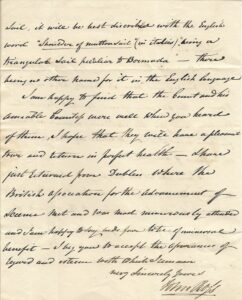 Sail, it will be best described with the English
word "Shoulder of mutton sail" (in italics) being a
triangular sail peculiar to Bermuda — there
being no other named for it in the English language
I am happy to find that the Count and his
amiable Countess were well when you heard
of them I hope that they will have a pleasant
tour and return in perfect health — I have
just returned from Dublin where the
British Association for the Advancement of
Science met and was most numerously attended
and I am happy to say to be of universal
benefit — I beg you to accept the assurance of
regard and esteem with which I remain
very Sincerely Yours